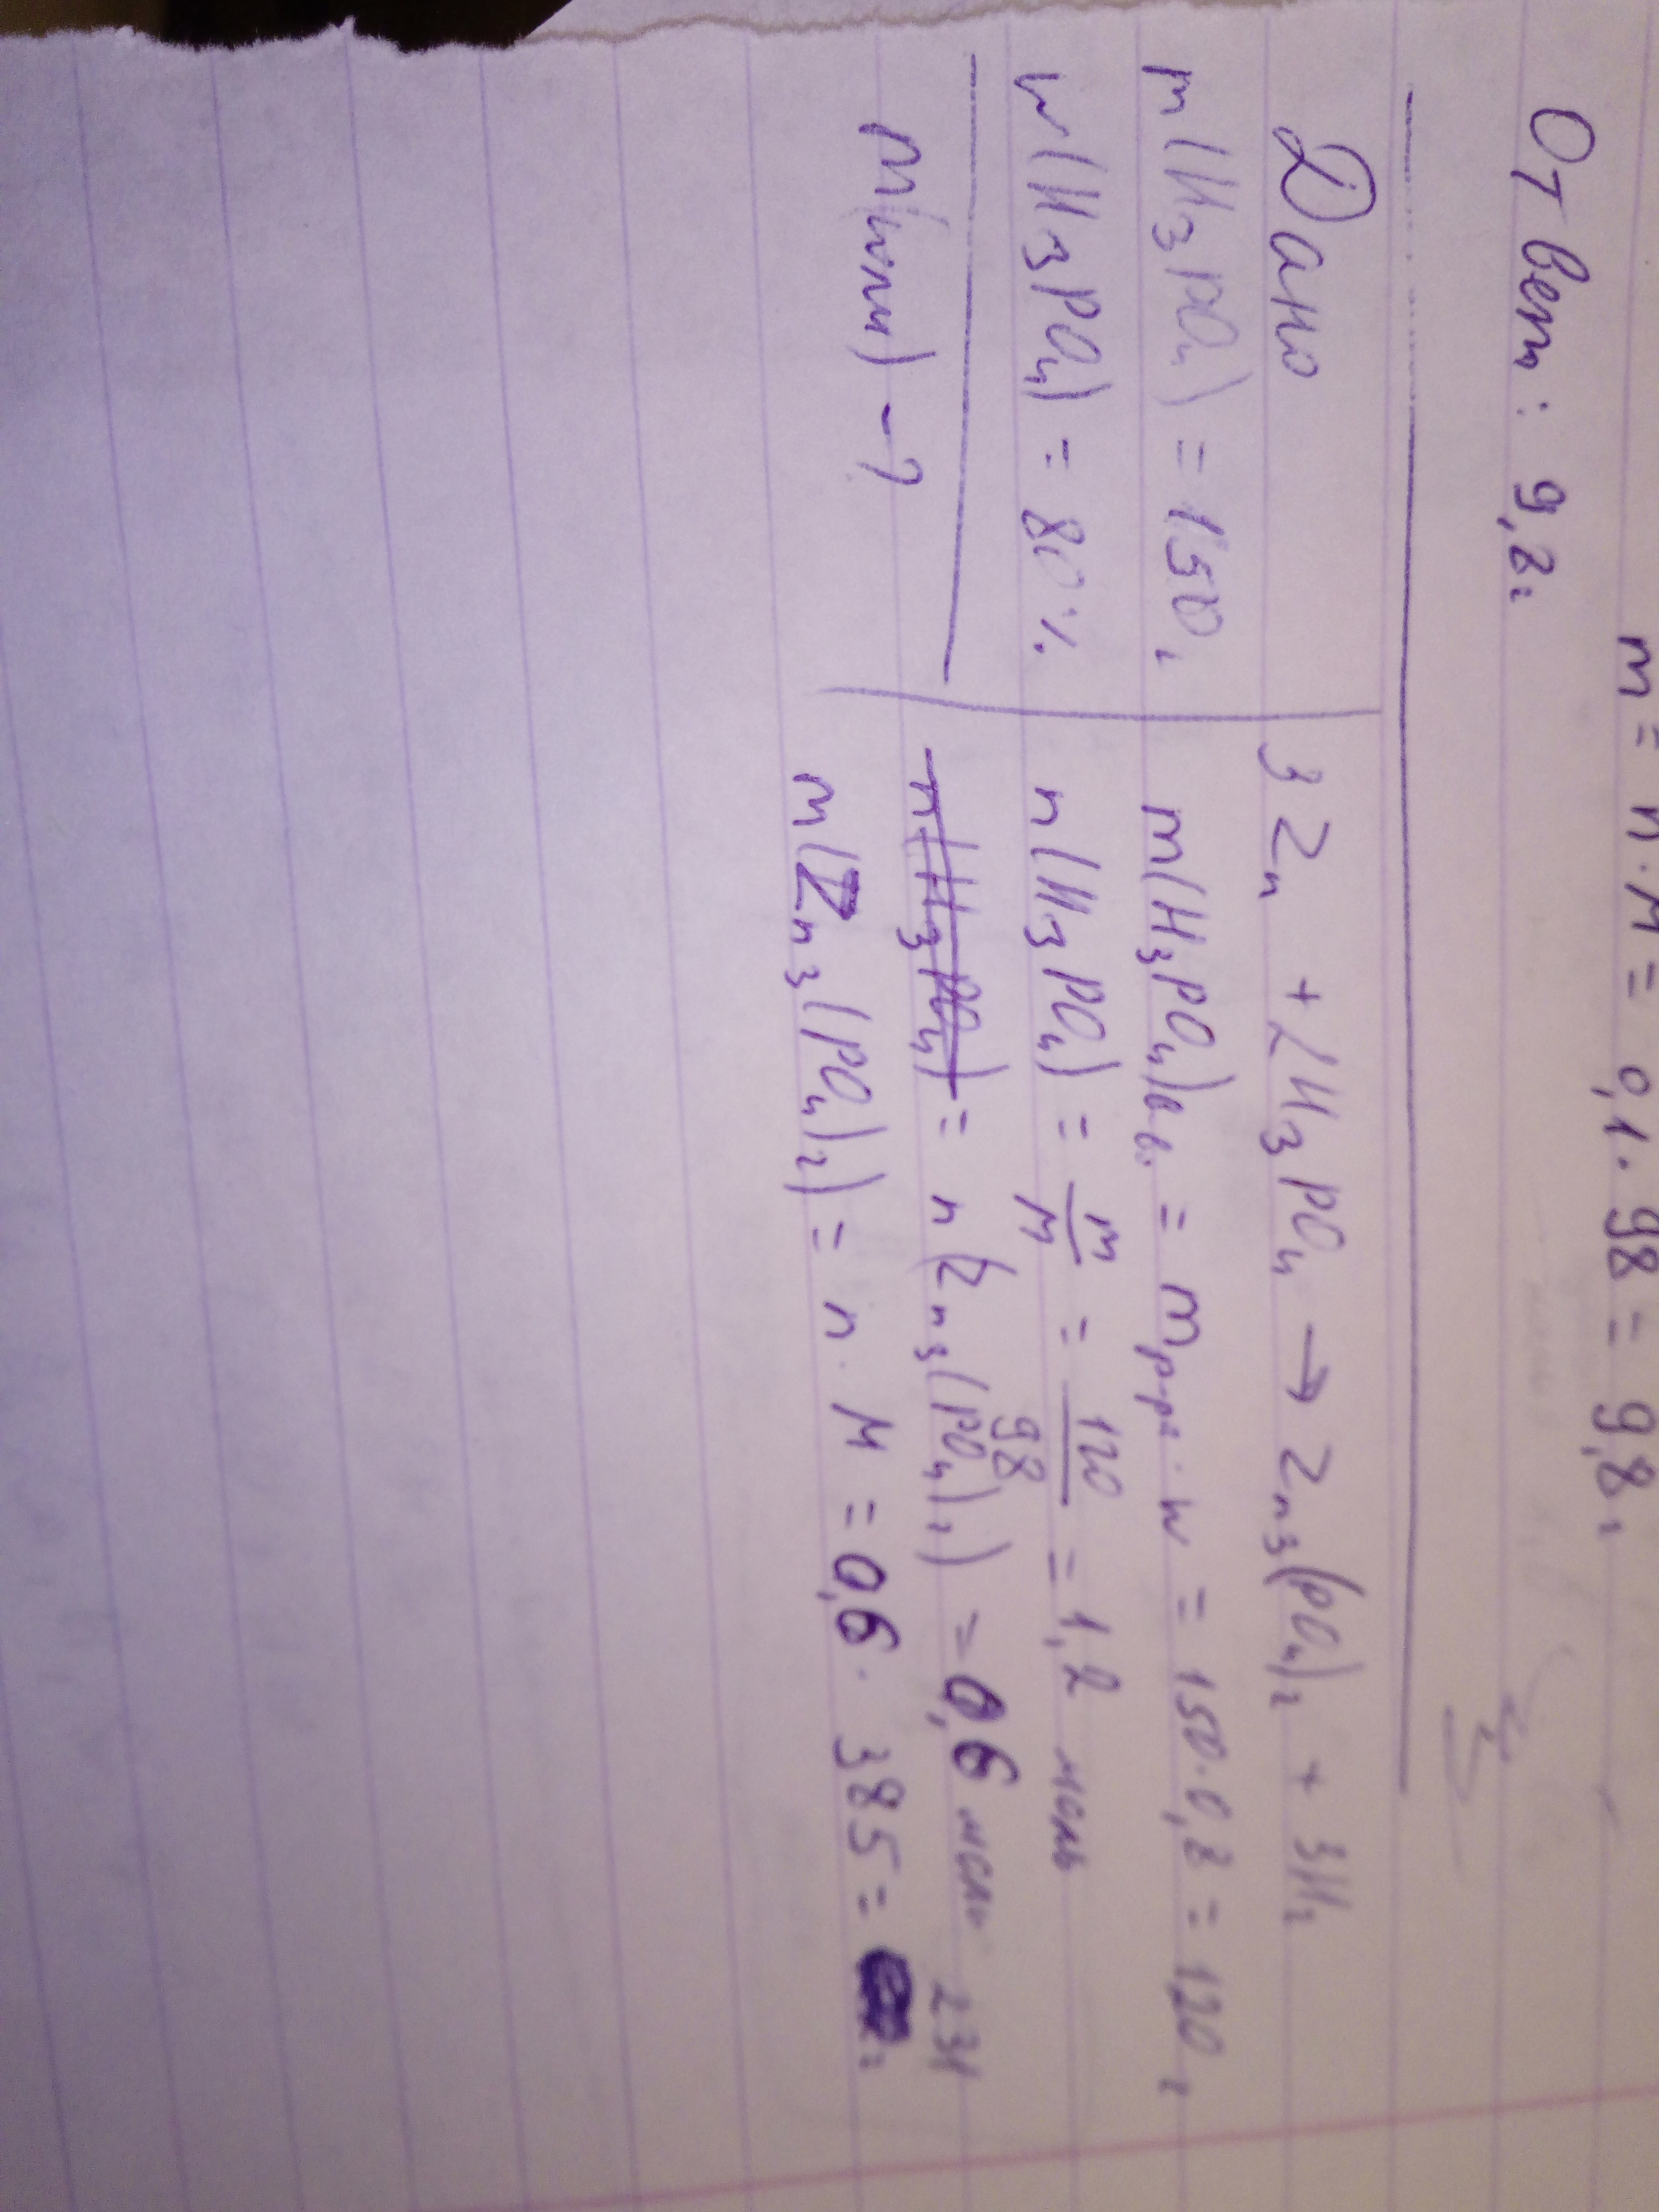 m = n · M = 0,1 · 98 = 9,8г
Ответ: 9,8г
Дано
m(H₃PO₄) = 150г
w(H₃PO₄) = 80%
m(соли) - ?
3Zn + 2H₃PO₄ → Zn₃(PO₄)₂ + 3H₂
m(H₃PO₄)в.в. = mр-ра · w = 150 · 0,8 = 120г
n(H₃PO₄) = m/M = 120/98 = 1,2 моль
n(H₃PO₄) = n(Zn₃(PO₄)₂) = 0,6 моль
231
m(Zn₃(PO₄)₂) = n · M = 0,6 · 385 = г